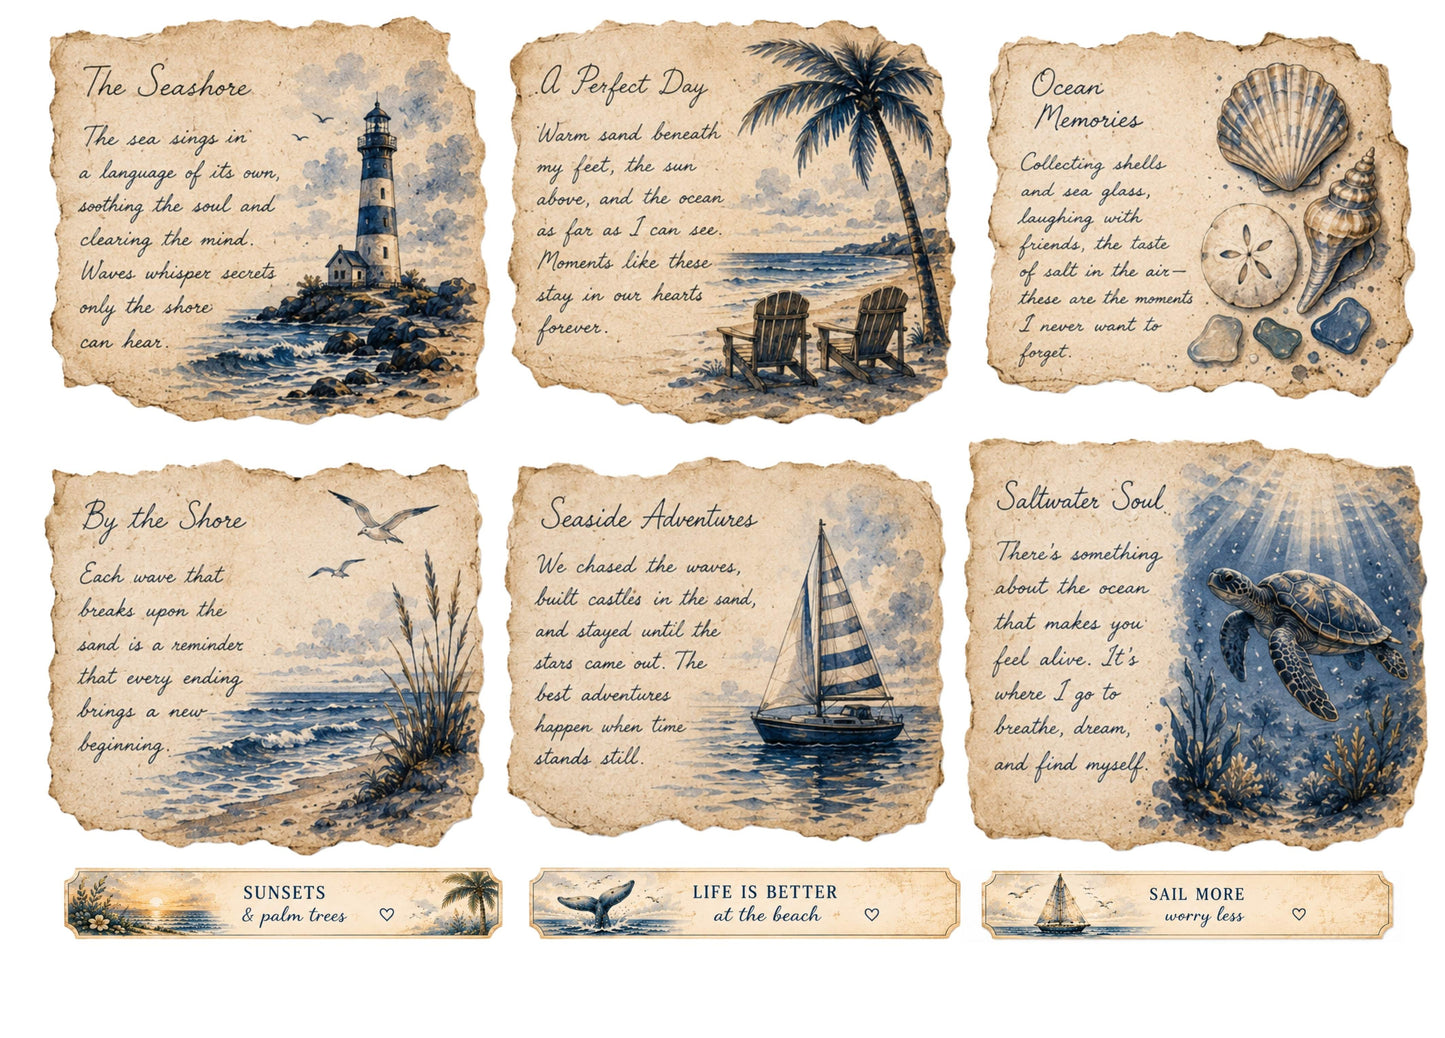 The Seashore
The sea sings in
a language of its own,
soothing the soul and
clearing the mind.
Waves whisper secrets
only the shore
can hear.
A Perfect Day
Warm sand beneath
my feet, the sun
above, and the ocean
as far as I can see.
Moments like these
stay in our hearts
forever.
Ocean
Memories
Collecting shells
and sea glass,
laughing with
friends, the taste
of salt in the air—
these are the moments
I never want to
forget.
By the Shore
Each wave that
breaks upon the
sand is a reminder
that every ending
brings a new
beginning.
Seaside Adventures
We chased the waves,
built castles in the sand,
and stayed until the
stars came out. The
best adventures
happen when time
stands still.
Saltwater Soul
There's something
about the ocean
that makes you
feel alive. It's
where I go to
breathe, dream,
and find myself.
SUNSETS
& palm trees
LIFE IS BETTER
at the beach
SAIL MORE
worry less